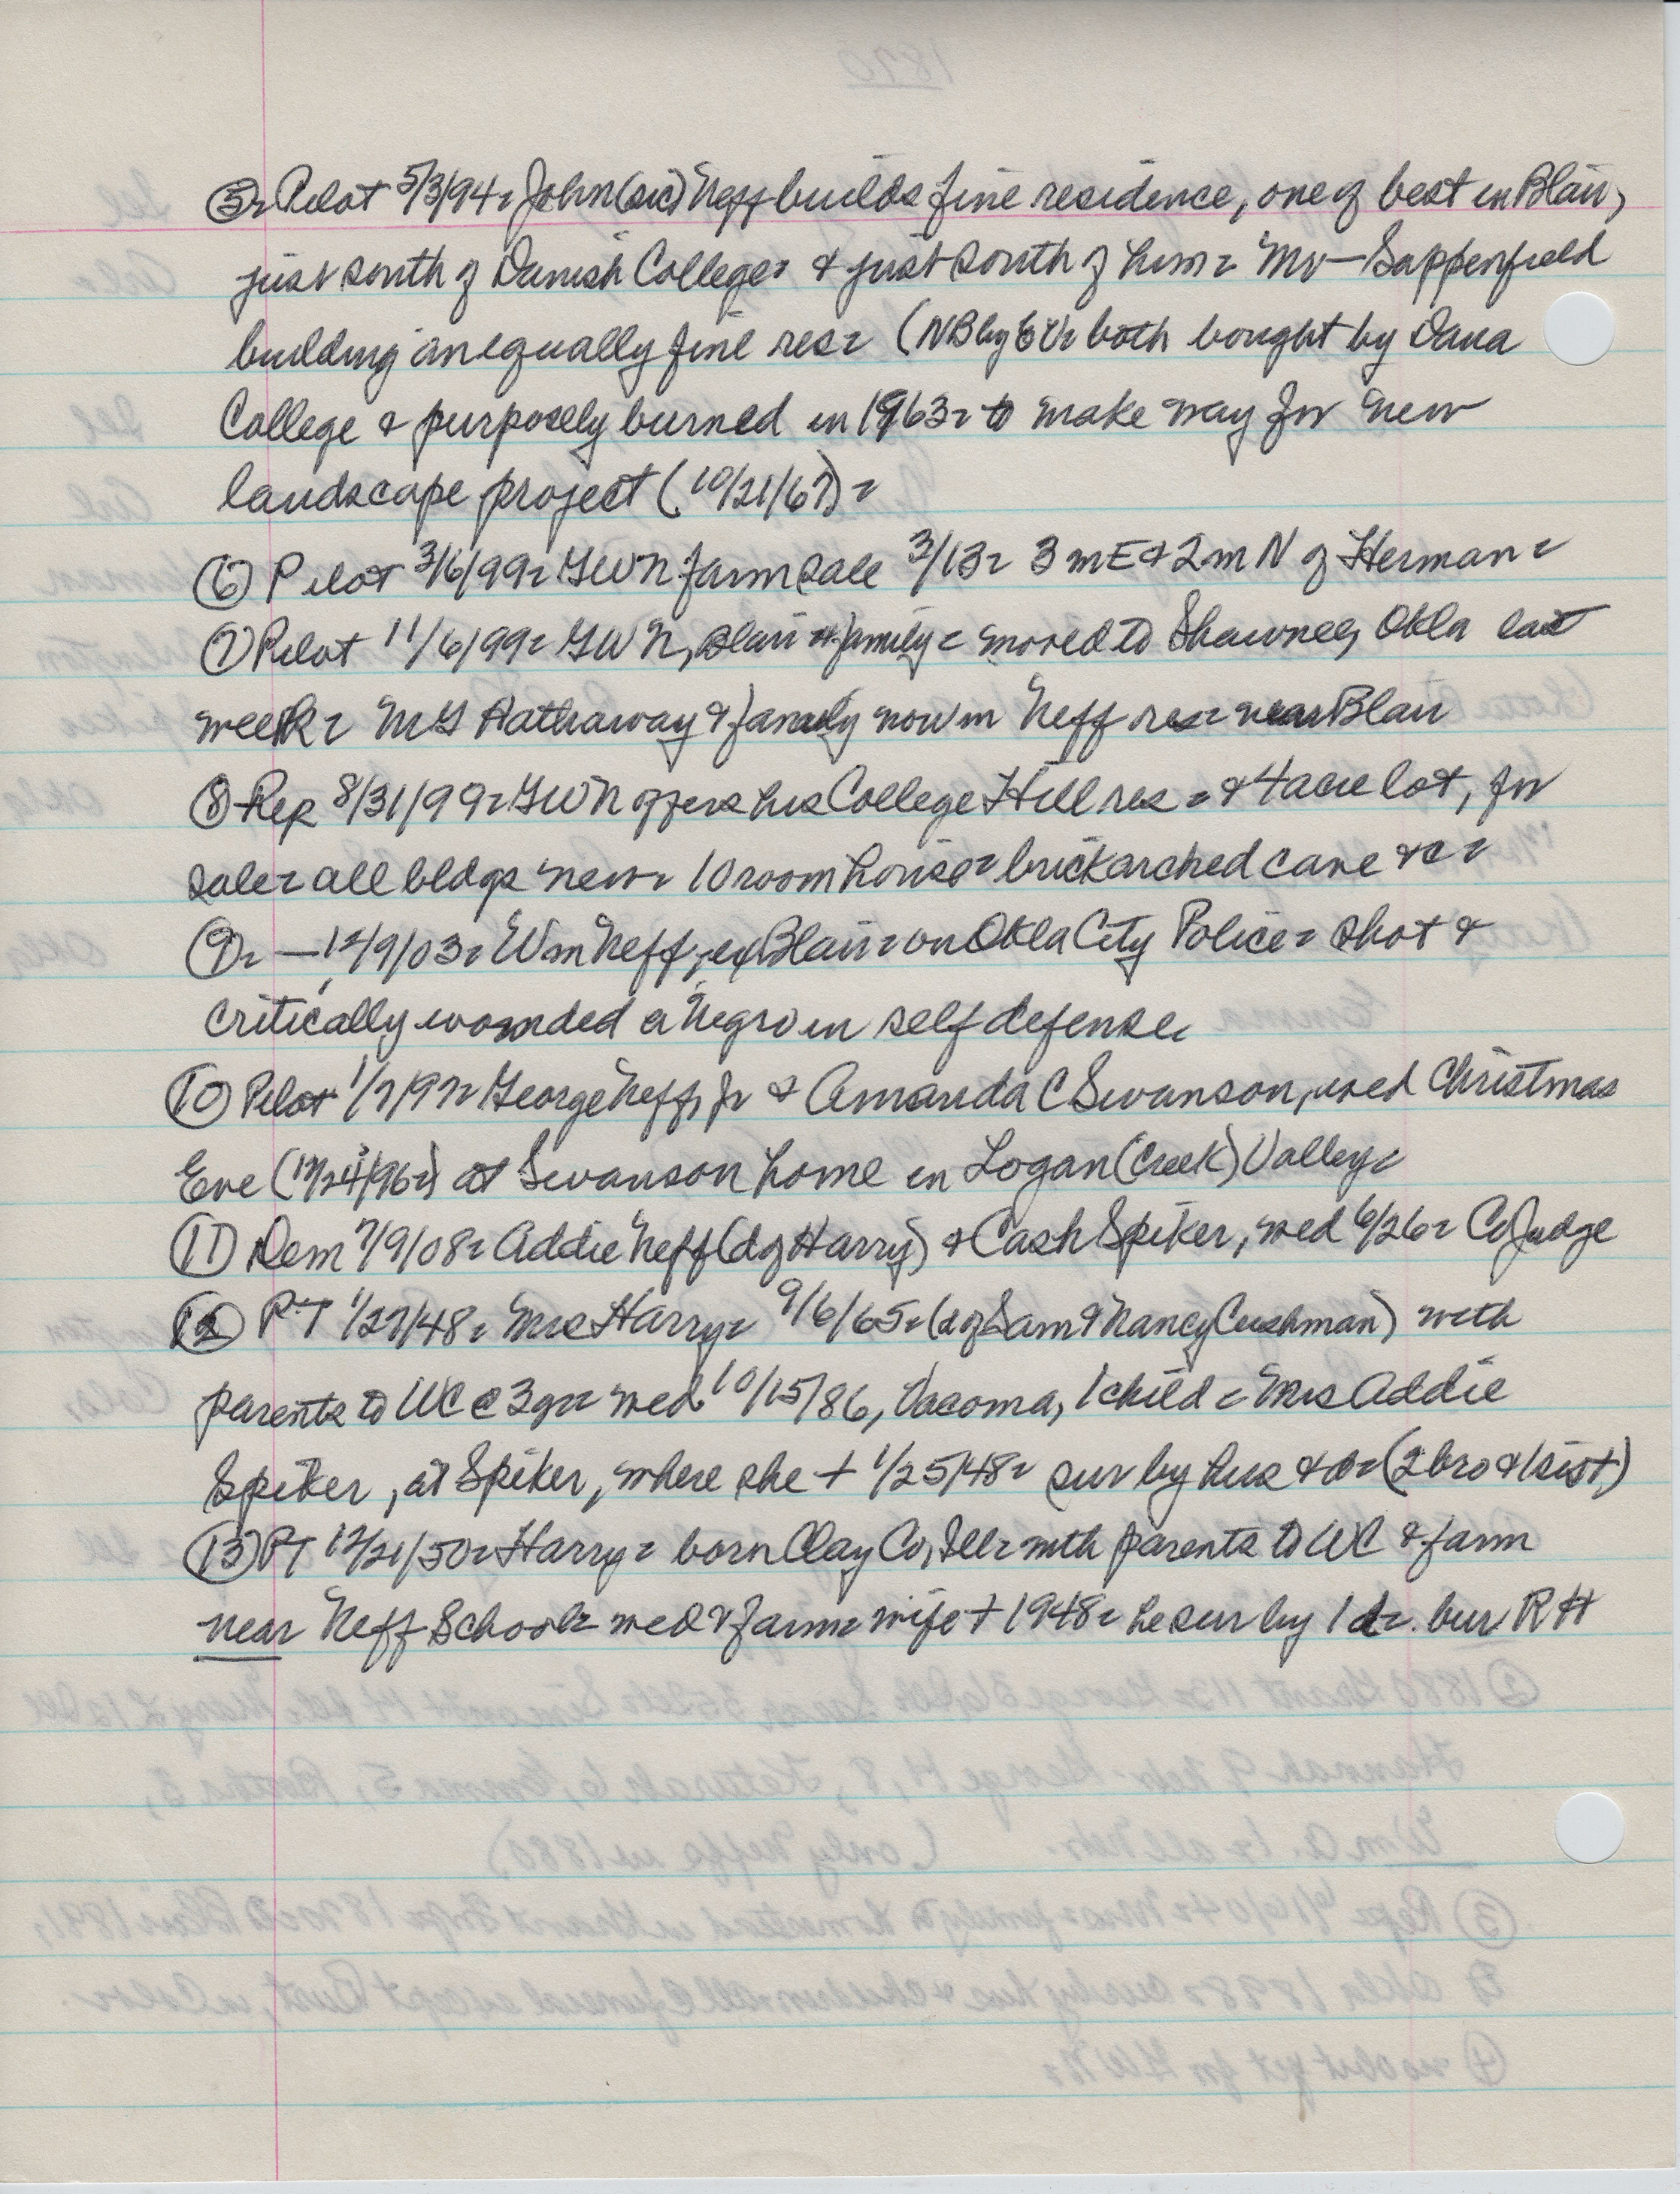 ⑤= Pilot 5/3/94= John (sic) Neff builds fine residence, one of best in Blair,
just south of Danish College= & just south of him= Mr — Sappenfield
building an equally fine res= (NB by both bought by Dana
College & purposely burned in 1963= to make way for new
landscape project (10/21/67)=
⑥ Pilot 3/6/99= GWN farm sale 3/13= 3 m E & 2 m N of Herman=
⑦ Pilot 11/6/99= GWN, Blair & family= moved to Shawnee, Okla last
week= MG Hathaway & family now in Neff res= near Blair
⑧ Rep 8/31/99= GWN offers his College Hill res= & 4 acre lot, for
sale= all bldgs new= 10 room house= brick arched cave &c=
⑨= — 12/9/03= Wm Neff, ex Blair= on Okla City Police= shot &
critically wounded a Negro in self defense=
⑩ Pilot 1/7/97= George Neff, Jr & Amanda C Swanson, wed Christmas
Eve (12/24/96=) at Swanson home in Logan (Creek) Valley=
⑪ Dem 7/9/08= Addie Neff (d of Harry) & Cash Spiker, wed 6/26= Co Judge
⑫ PT 1/27/48= Mrs Harry= 9/6/65= (d of Sam & Nancy Cushman) with
parents to WC @ 3 yr= wed 10/15/86, Tacoma, 1 child= Mrs Addie
Spiker, at Spiker, where she + 1/25/48= sur by hus & d= (2 bro & 1 sist)
⑬ PT 12/21/50= Harry= born Clay Co, Ill= with parents to WC & farm
near Neff School= wed & farm= wife + 1948= he sur by 1 d=. bur RH